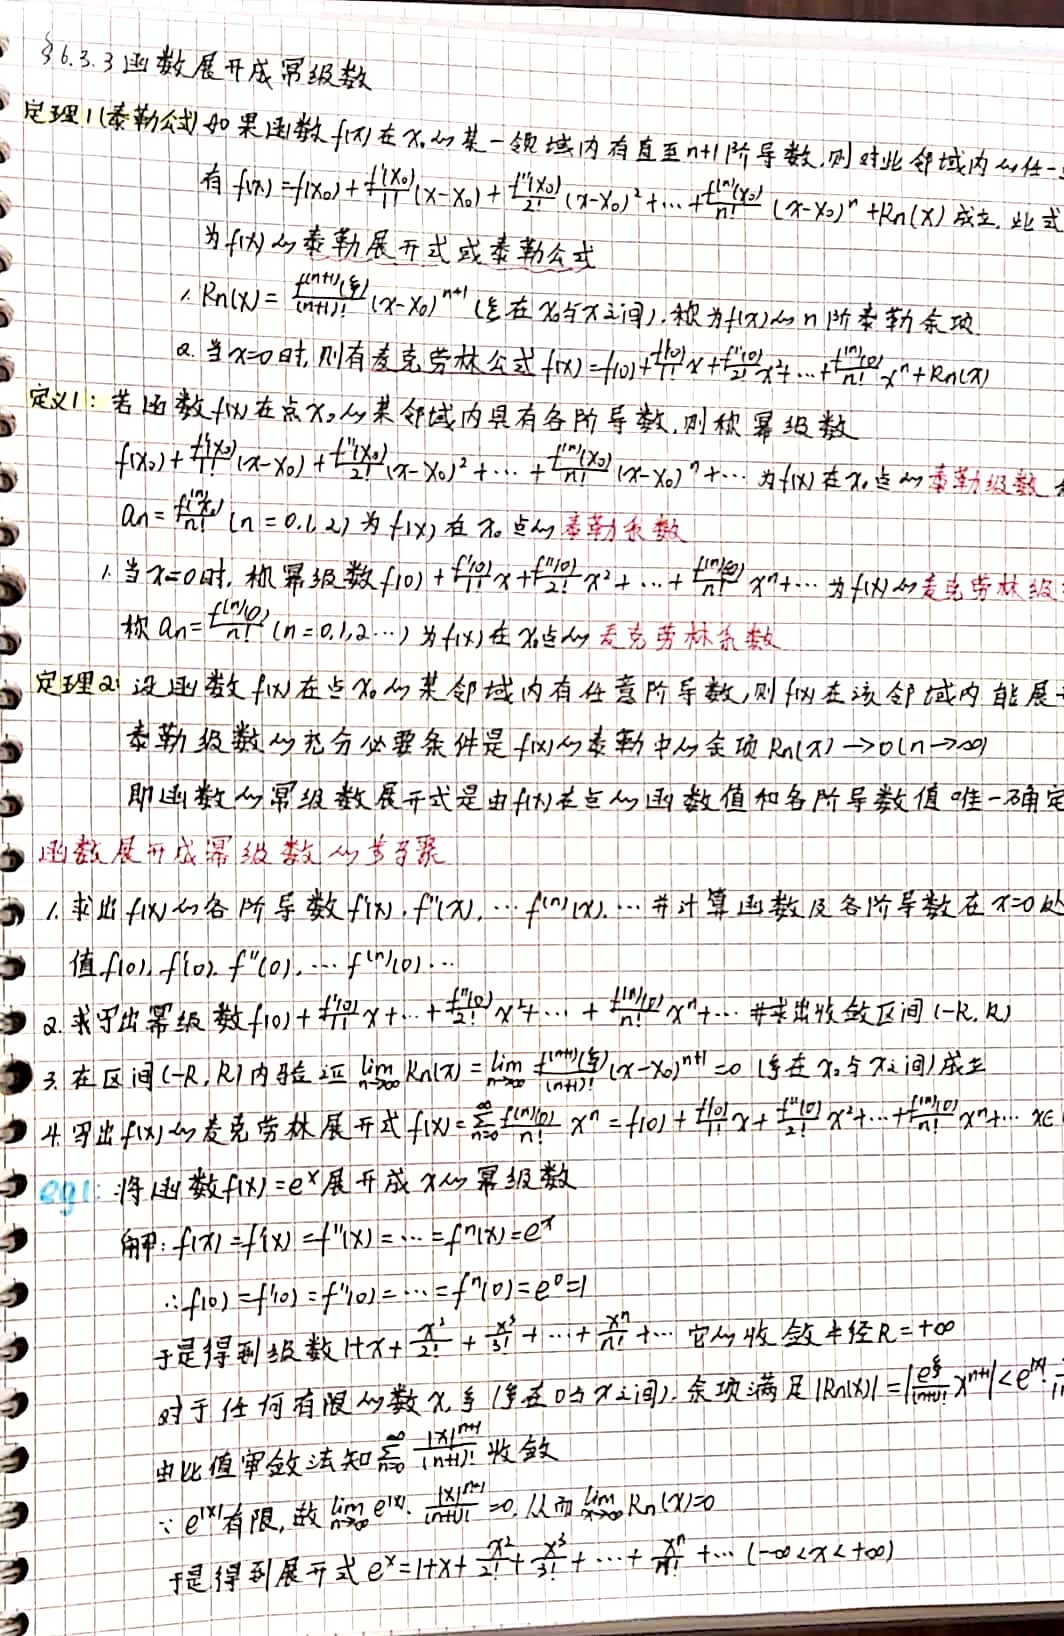 §6.3.3 函数展开成幂级数
定理1(泰勒公式) 如果函数f(x)在x₀的某一领域内有直至n+1阶导数,则对此邻域内的任一
有 f(x)=f(x₀)+f'(x₀)/1!(x-x₀)+f''(x₀)/2!(x-x₀)²+…+f⁽ⁿ⁾(x₀)/n!(x-x₀)ⁿ+Rn(x)成立,此式
为f(x)的泰勒展开式或泰勒公式
1. Rn(x)=f⁽ⁿ⁺¹⁾(ξ)/(n+1)!(x-x₀)ⁿ⁺¹(ξ在x₀与x之间),称为f(x)的n阶泰勒余项
2. 当x=0时,则有麦克劳林公式f(x)=f(0)+f'(0)/1!x+f''(0)/2!x²+…+f⁽ⁿ⁾(0)/n!xⁿ+Rn(x)
定义1: 若函数f(x)在点x₀的某邻域内具有各阶导数,则称幂级数
f(x₀)+f'(x₀)/1!(x-x₀)+f''(x₀)/2!(x-x₀)²+…+f⁽ⁿ⁾(x₀)/n!(x-x₀)ⁿ+…为f(x)在x₀点的泰勒级数
an=f⁽ⁿ⁾(x₀)/n!(n=0,1,2)为f(x)在x₀点的泰勒系数
1. 当x=0时,称幂级数f(0)+f'(0)/1!x+f''(0)/2!x²+…+f⁽ⁿ⁾(0)/n!xⁿ+…为f(x)的麦克劳林级
称an=f⁽ⁿ⁾(0)/n!(n=0,1,2…)为f(x)在x₀点的麦克劳林系数
定理2: 设函数f(x)在点x₀的某邻域内有任意阶导数,则f(x)在该邻域内能展
泰勒级数的充分必要条件是f(x)的泰勒中的余项Rn(x)→0(n→∞)
即函数的幂级数展开式是由f(x)在点的函数值和各阶导数值唯一确定
函数展开成幂级数的步骤
1. 求出f(x)的各阶导数f'(x),f''(x),…f⁽ⁿ⁾(x),…并计算函数及各阶导数在x=0处
值f(0),f'(0),f''(0),…f⁽ⁿ⁾(0)…
2. 求写出幂级数f(0)+f'(0)/1!x+…+f''(0)/2!x²+…+f⁽ⁿ⁾(0)/n!xⁿ+…并求出收敛区间(-R,R)
3. 在区间(-R,R)内验证 lim n→∞ Rn(x)=lim n→∞ f⁽ⁿ⁺¹⁾(ξ)/(n+1)!(x-x₀)ⁿ⁺¹=0(ξ在x₀与x之间)成立
4. 写出f(x)的麦克劳林展开式f(x)=∑n=0^∞ f⁽ⁿ⁾(0)/n! xⁿ=f(0)+f'(0)/1!x+f''(0)/2!x²+…+f⁽ⁿ⁾(0)/n!xⁿ+… x∈
eg1: 将函数f(x)=eˣ展开成x的幂级数
解: f(x)=f'(x)=f''(x)=…=fⁿ(x)=eˣ
∴f(0)=f'(0)=f''(0)=…=fⁿ(0)=e⁰=1
于是得到级数1+x+x²/2!+x³/3!+…+xⁿ/n!+…它的收敛半径R=+∞
对于任何有限的数x,ξ(ξ在0与x之间),余项满足|Rn(x)|=|e^ξ/(n+1)! xⁿ⁺¹|<e^|x|·
由比值审敛法知∑n=0^∞ |x|ⁿ⁺¹/(n+1)!收敛
∵e^|x|有限,故 lim n→∞ e^|x|·|x|ⁿ⁺¹/(n+1)!=0,从而 lim x→∞ Rn(x)=0
于是得到展开式eˣ=1+x+x²/2!+x³/3!+…+xⁿ/n!+…(-∞<x<+∞)